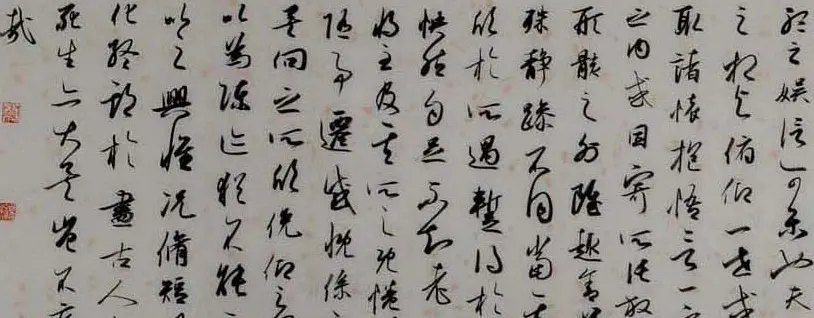 聽之娛信可樂也夫
之相與俯仰一世或
取諸懷抱悟言一室
之內或因寄所託放
形骸之外雖趣舍
殊靜躁不同當其
欣於所遇暫得於
快然自足不知老
將至及其所之既惓
隨事遷感慨係之
其向之所欣俛仰之
以為陳迹猶不能
以之興懷況脩短
化終期於盡古人
死生亦大矣豈不痛
哉